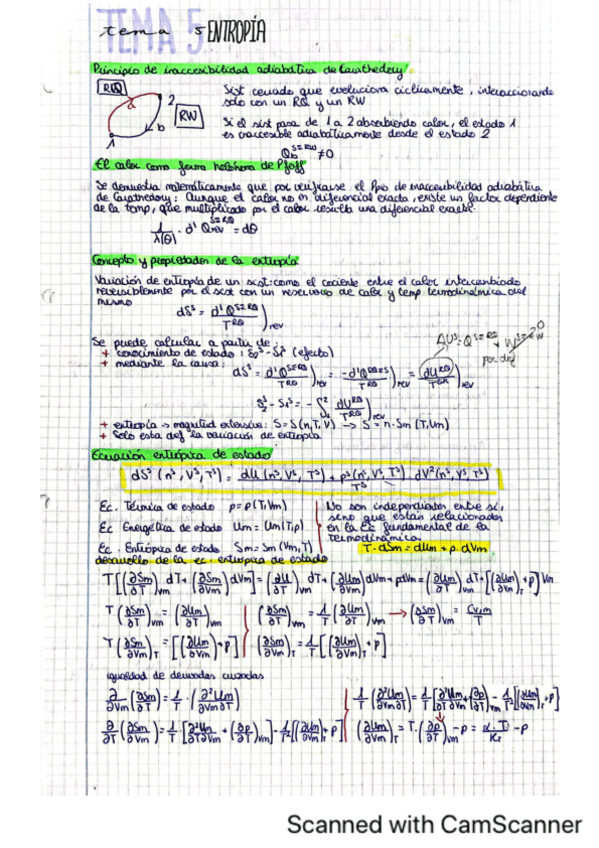 TEMA 5
tema 5 ENTROPÍA
Principio de inaccesibilidad adiabática de Carathedory
RQ
a
2
RW
b
1
Sist cerrado que evoluciona cíclicamente, interaccionando
solo con un RQ y un RW
Si el sist pasa de 1 a 2 absorbiendo calor, el estado 1
es inaccesible adiabáticamente desde el estado 2
Q_b^{S⇄RW} ≠ 0
El calor como forma holónoma de Pfaff
Se demuestra matemáticamente que por verificarse el Ppio de inaccesibilidad adiabática
de Carathedory: Aunque el calor no es diferencial exacta, existe un factor dependiente
de la temp, que multiplicado por el calor resulta una diferencial exacta.
1/λ(θ) · d' Q_rev^{S⇄RQ} = dθ
Concepto y propiedades de la entropía
Variación de entropía de un sist: como el cociente entre el calor intercambiado
reversiblemente por el sist con un reservorio de calor y temp termodinámica del
mismo
dS^s = d'Q^{S⇄RQ}/T^{RQ})_rev
Se puede calcular a partir de:
+ conocimiento de estado: S_2^s - S_1^s (efecto)
+ mediante la causa: dS^s = d'Q^{S⇄RQ}/T^{RQ})_rev = -d'Q^{RQ⇄S}/T^{RQ})_rev = (dU^{RQ}/T^{RQ})_rev
S_2^s - S_1^s = - ∫_1^2 dU^{RQ}/T^{RQ})_rev
+ entropía → magnitud extensiva: S = S(n,T,V) → S = n·Sm (T,Vm)
+ Solo esta def la variación de entropía
Ecuación entrópica de estado
dS^s (n^s, V^s, T^s) = dU (n^s, V^s, T^s) + p^s (n^s, V^s, T^s) · dV^s (n^s, V^s, T^s) / T^s
Ec. Térmica de estado p = p (T,Vm)
Ec Energética de estado Um = Um(T,p)
Ec. Entrópica de estado Sm = Sm (Vm,T)
No son independientes entre si,
sino que están relacionados
en la Ec fundamental de la
termodinámica
T·dSm = dUm + p dVm
desarrollo de la ec entropica de estado
T[(∂Sm/∂T)_Vm dT + (∂Sm/∂Vm)_T dVm] = (∂U/∂T)_Vm dT + (∂Um/∂Vm)_T dVm + pdVm = (∂Um/∂T)_Vm dT + [(∂Um/∂Vm)_T + p] Vm
T (∂Sm/∂T)_Vm = (∂Um/∂T)_Vm
(∂Sm/∂T)_Vm = 1/T (∂Um/∂T)_Vm → (∂Sm/∂T)_Vm = Cv,m/T
T (∂Sm/∂Vm)_T = [(∂Um/∂Vm)_T + p]
(∂Sm/∂Vm)_T = 1/T [(∂Um/∂Vm)_T + p]
igualdad de derivadas cruzadas
∂/∂Vm (∂Sm/∂T) = 1/T · (∂²Um/∂Vm∂T)
1/T (∂²Um/∂Vm∂T) = 1/T [∂²Um/∂T∂Vm + (∂p/∂T)_Vm] - 1/T² [(∂Um/∂Vm)_T + p]
∂/∂T (∂Sm/∂Vm) = 1/T · [∂²Um/∂T∂Vm + (∂p/∂T)_Vm] - 1/T² [(∂Um/∂Vm)_T + p]
(∂Um/∂Vm)_T = T · (∂p/∂T)_Vm - p = α·T/K_T - p
Scanned with CamScanner